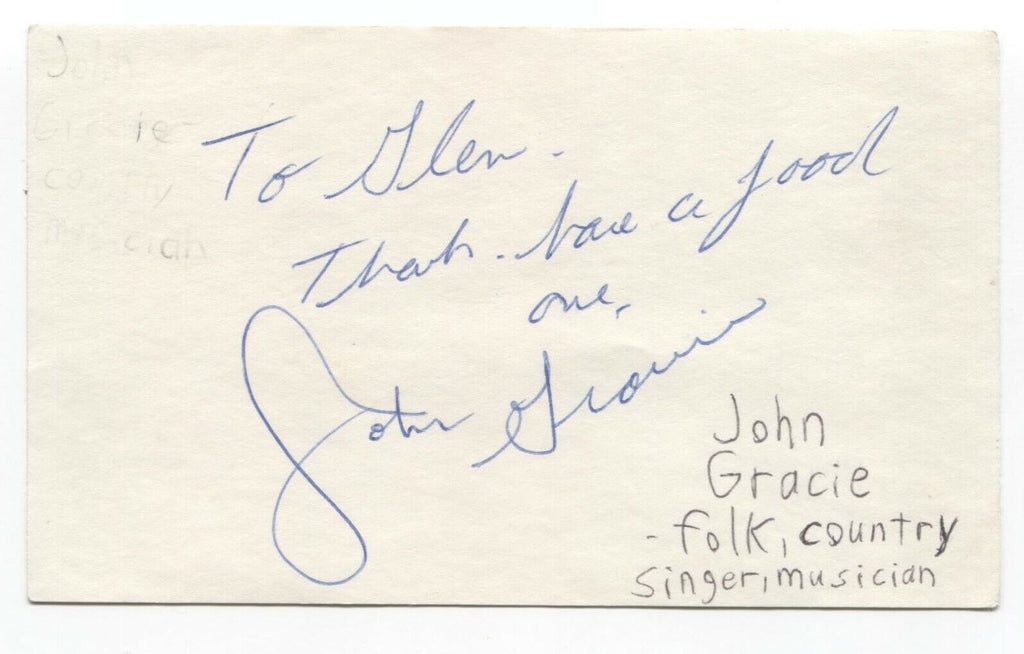 John
Gracie -
country
musician
To Glen -
Thanks - have a good
one,
John Gracie
John
Gracie
- folk, country
singer, musician